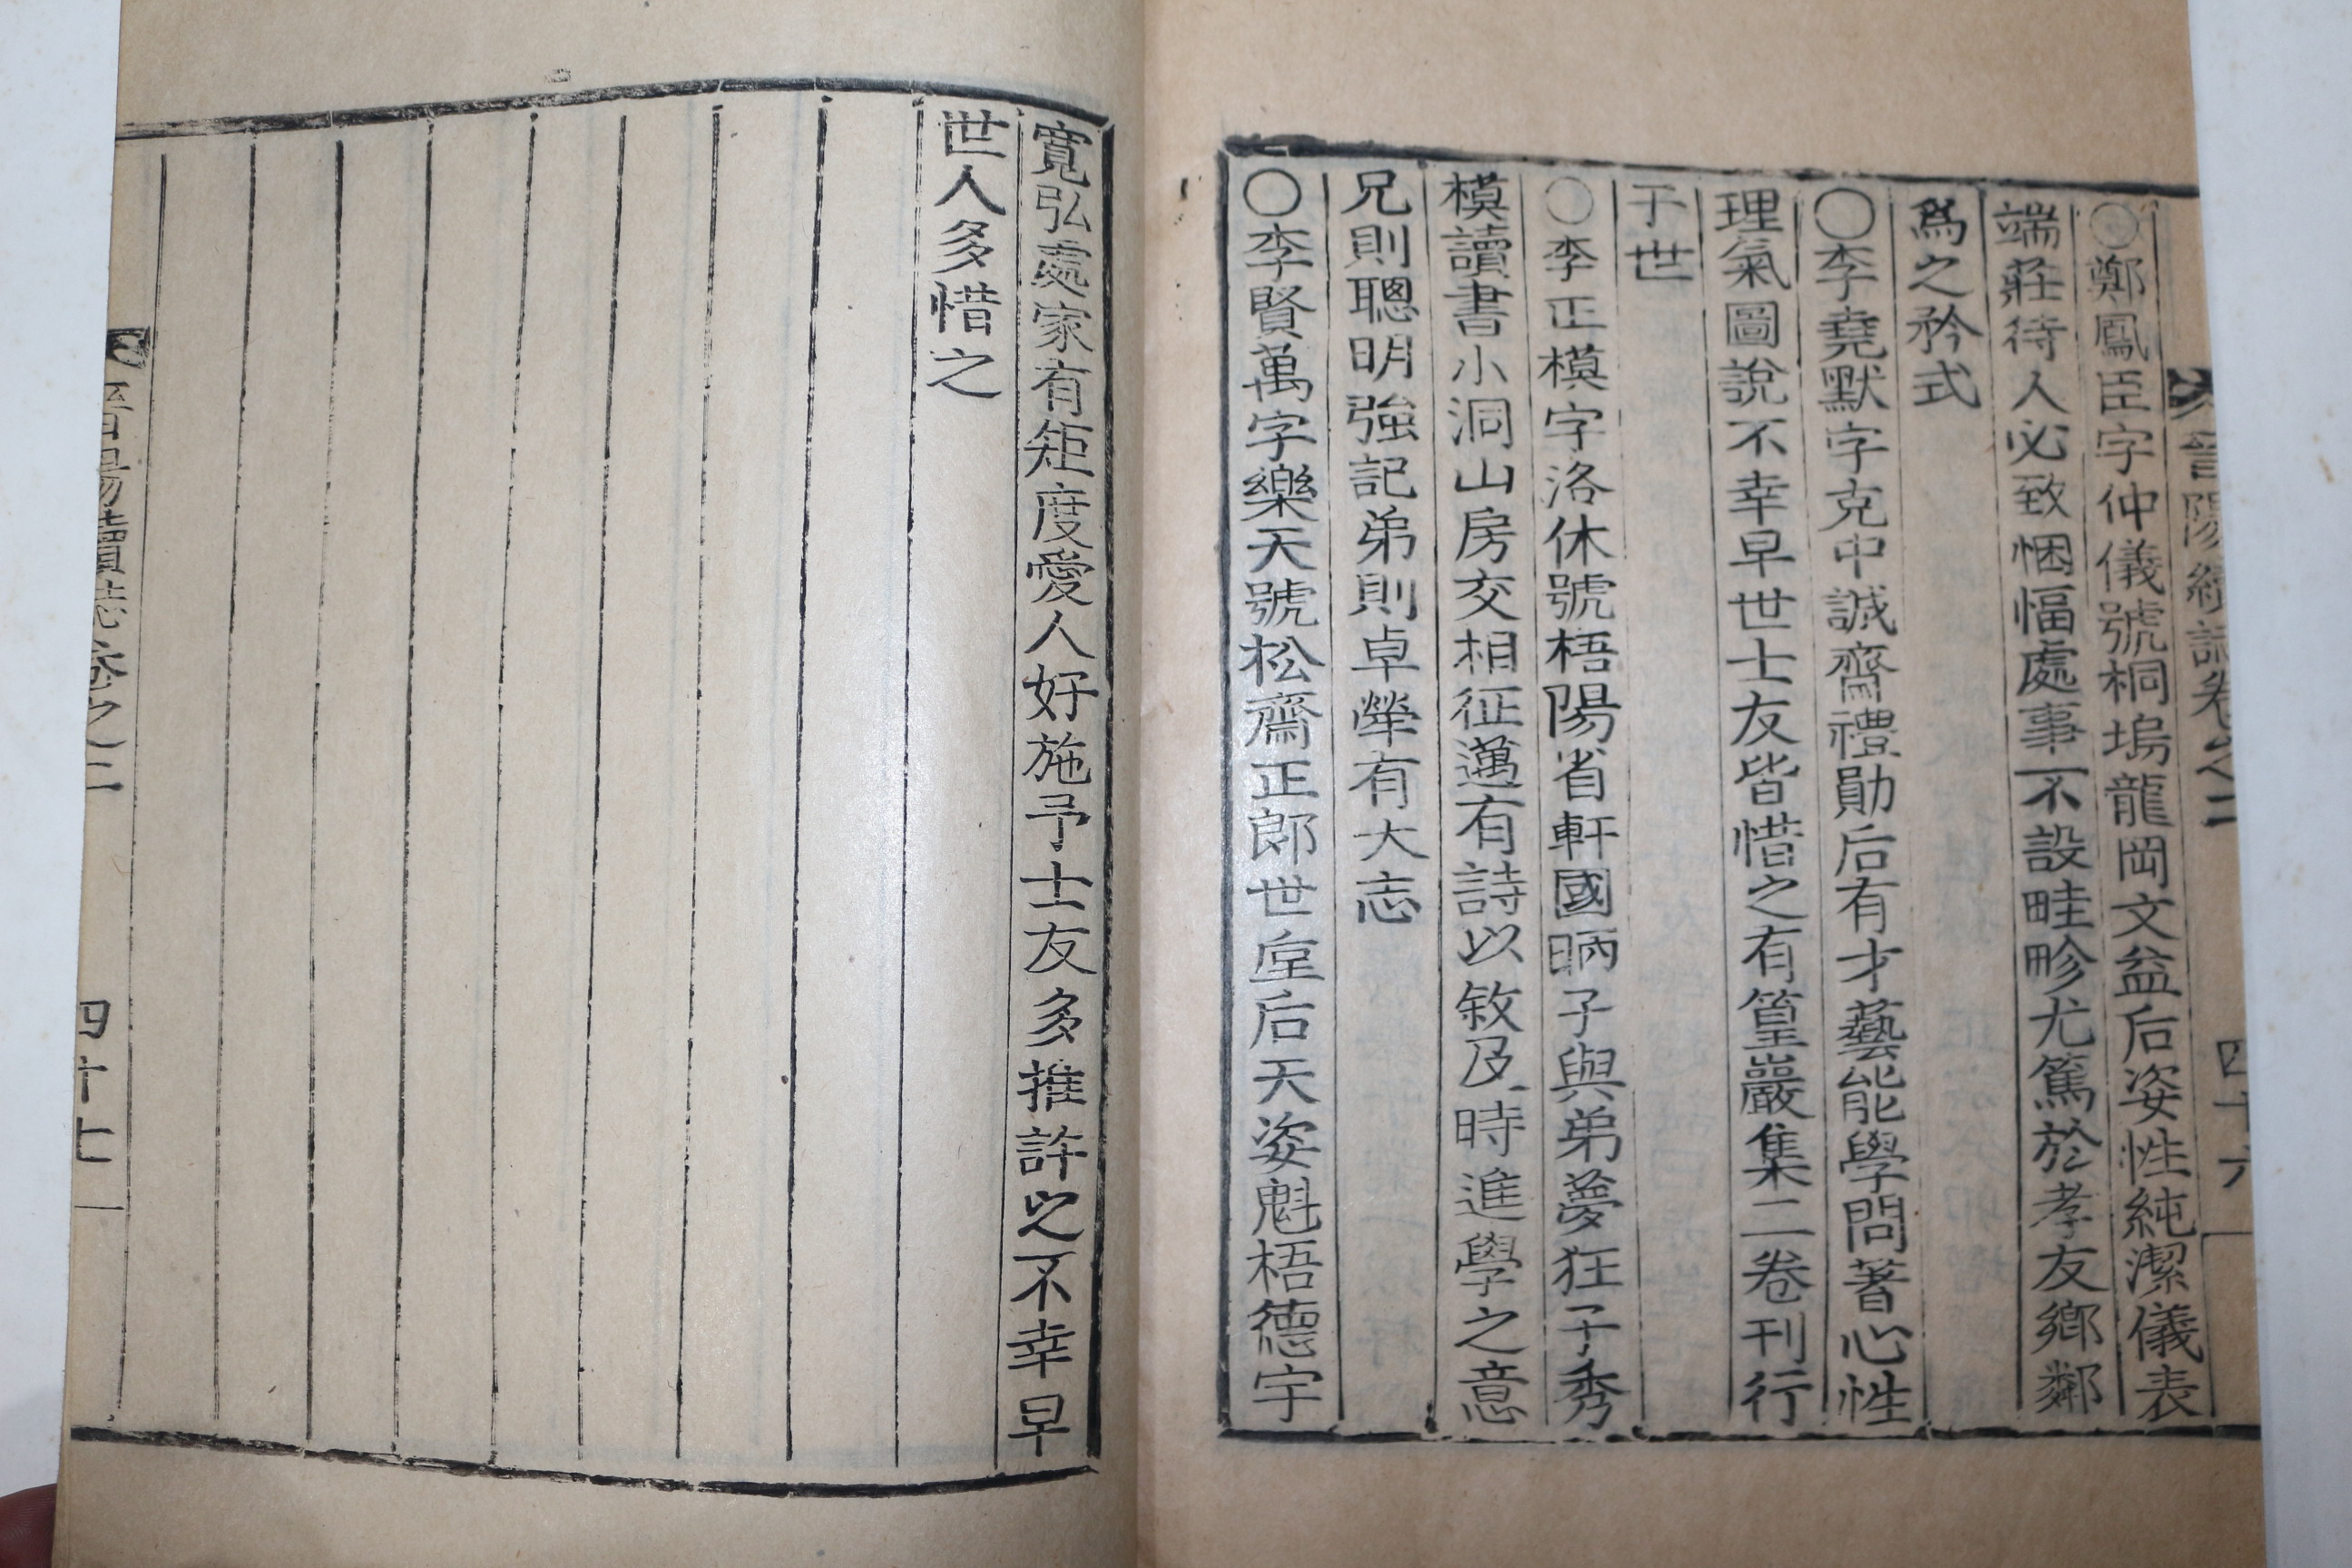 晉陽續誌卷之二 四十六
〇鄭鳳臣字仲儀號桐塢龍岡文益后姿性純潔儀表
端莊待人必致悃愊處事不設畦畛尤篤於孝友鄉鄰
爲之矜式
〇李堯默字克中號誠齋禮勛后有才藝能學問著心性
理氣圖說不幸早世士友皆惜之有篁巖集二卷刊行
于世
〇李正模字洛休號梧陽省軒國昞子與弟夢狂子秀
模讀書小洞山房交相征邁有詩以敘及時進學之意
兄則聰明強記弟則卓犖有大志
〇李賢萬字樂天號松齋正郎世垕后天姿魁梧德宇
寬弘處家有矩度愛人好施予士友多推許以不幸早
世人多惜之
晉陽續誌卷之二 四十七